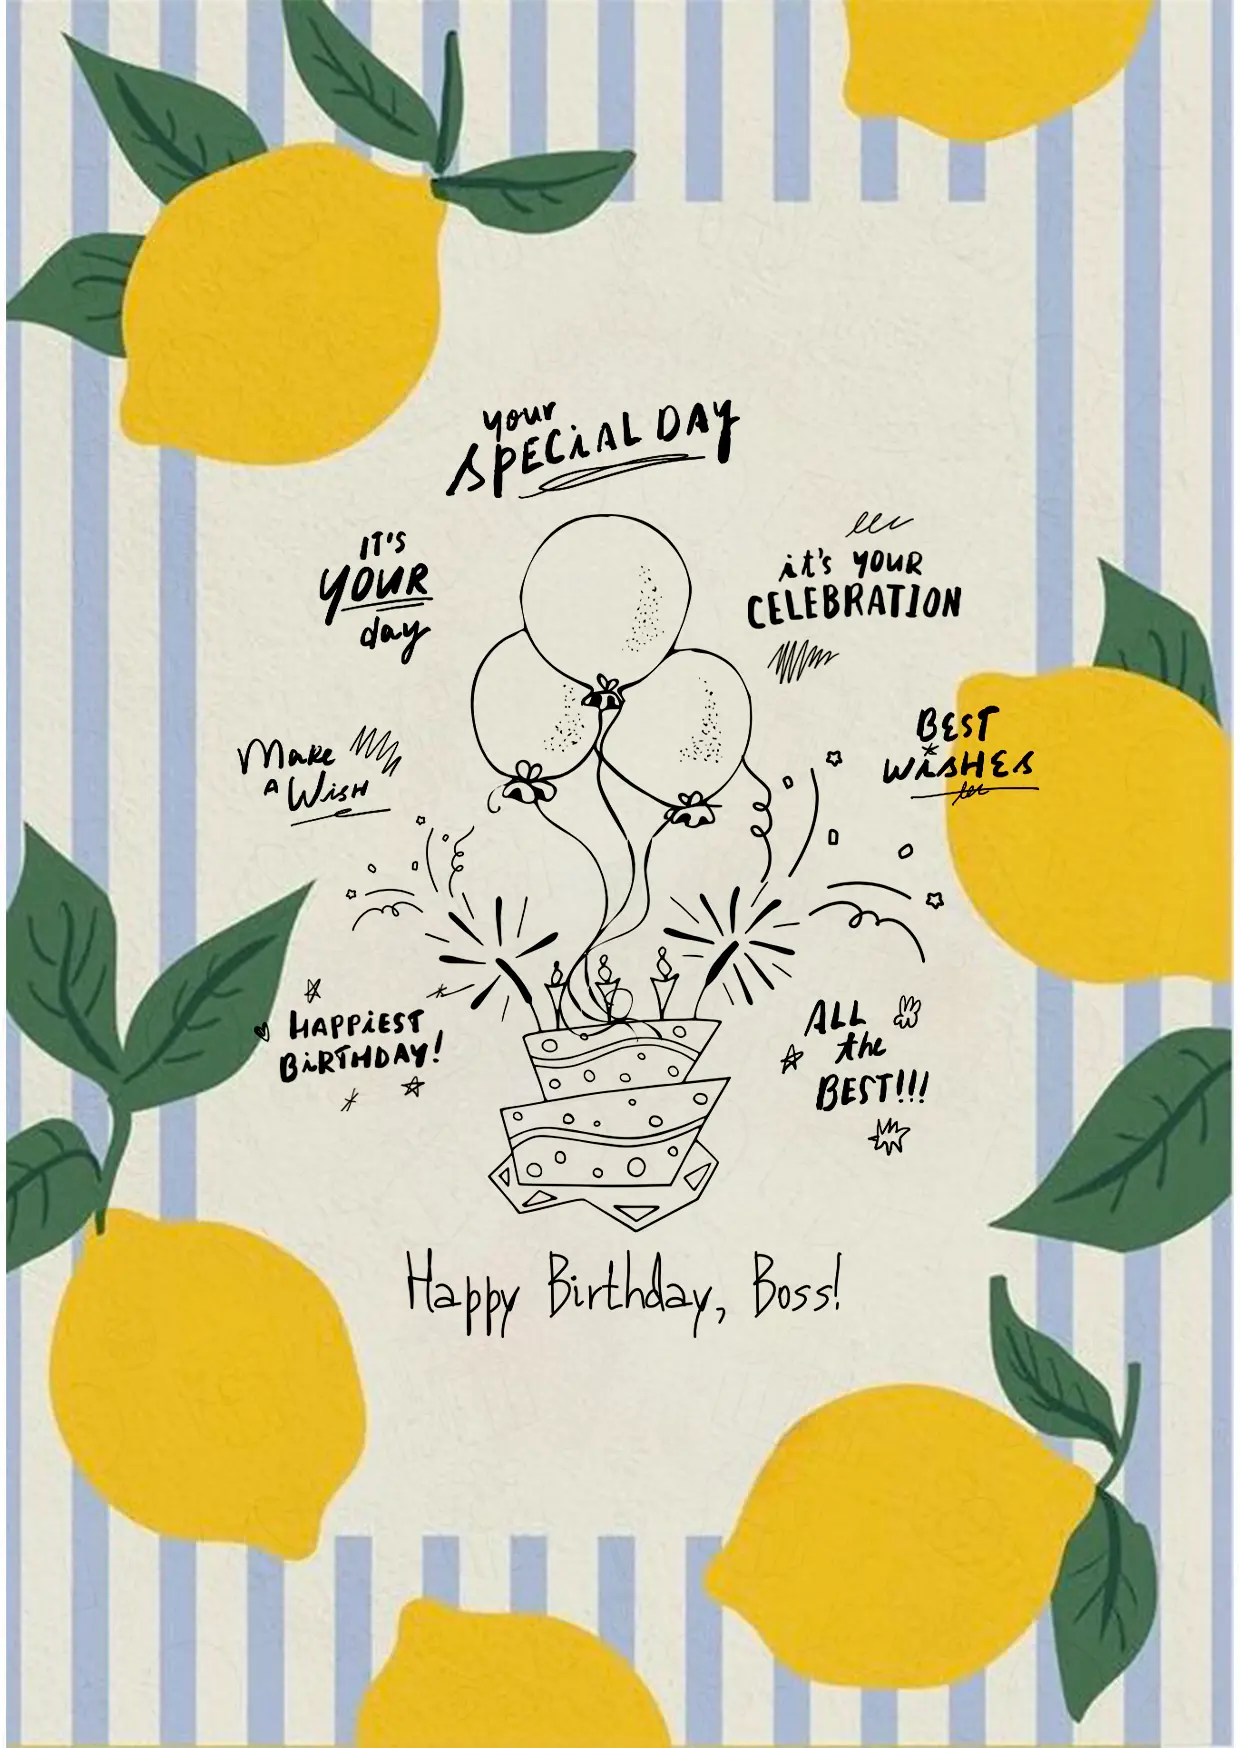 your
SPECiAL DAY
IT'S
YOUR
day
it's YOUR
CELEBRATION
Make
A WisH
BEST
WiSHES
HAPPiEST
BiRTHDAY!
ALL
the
BEST!!!
Happy Birthday, Boss!